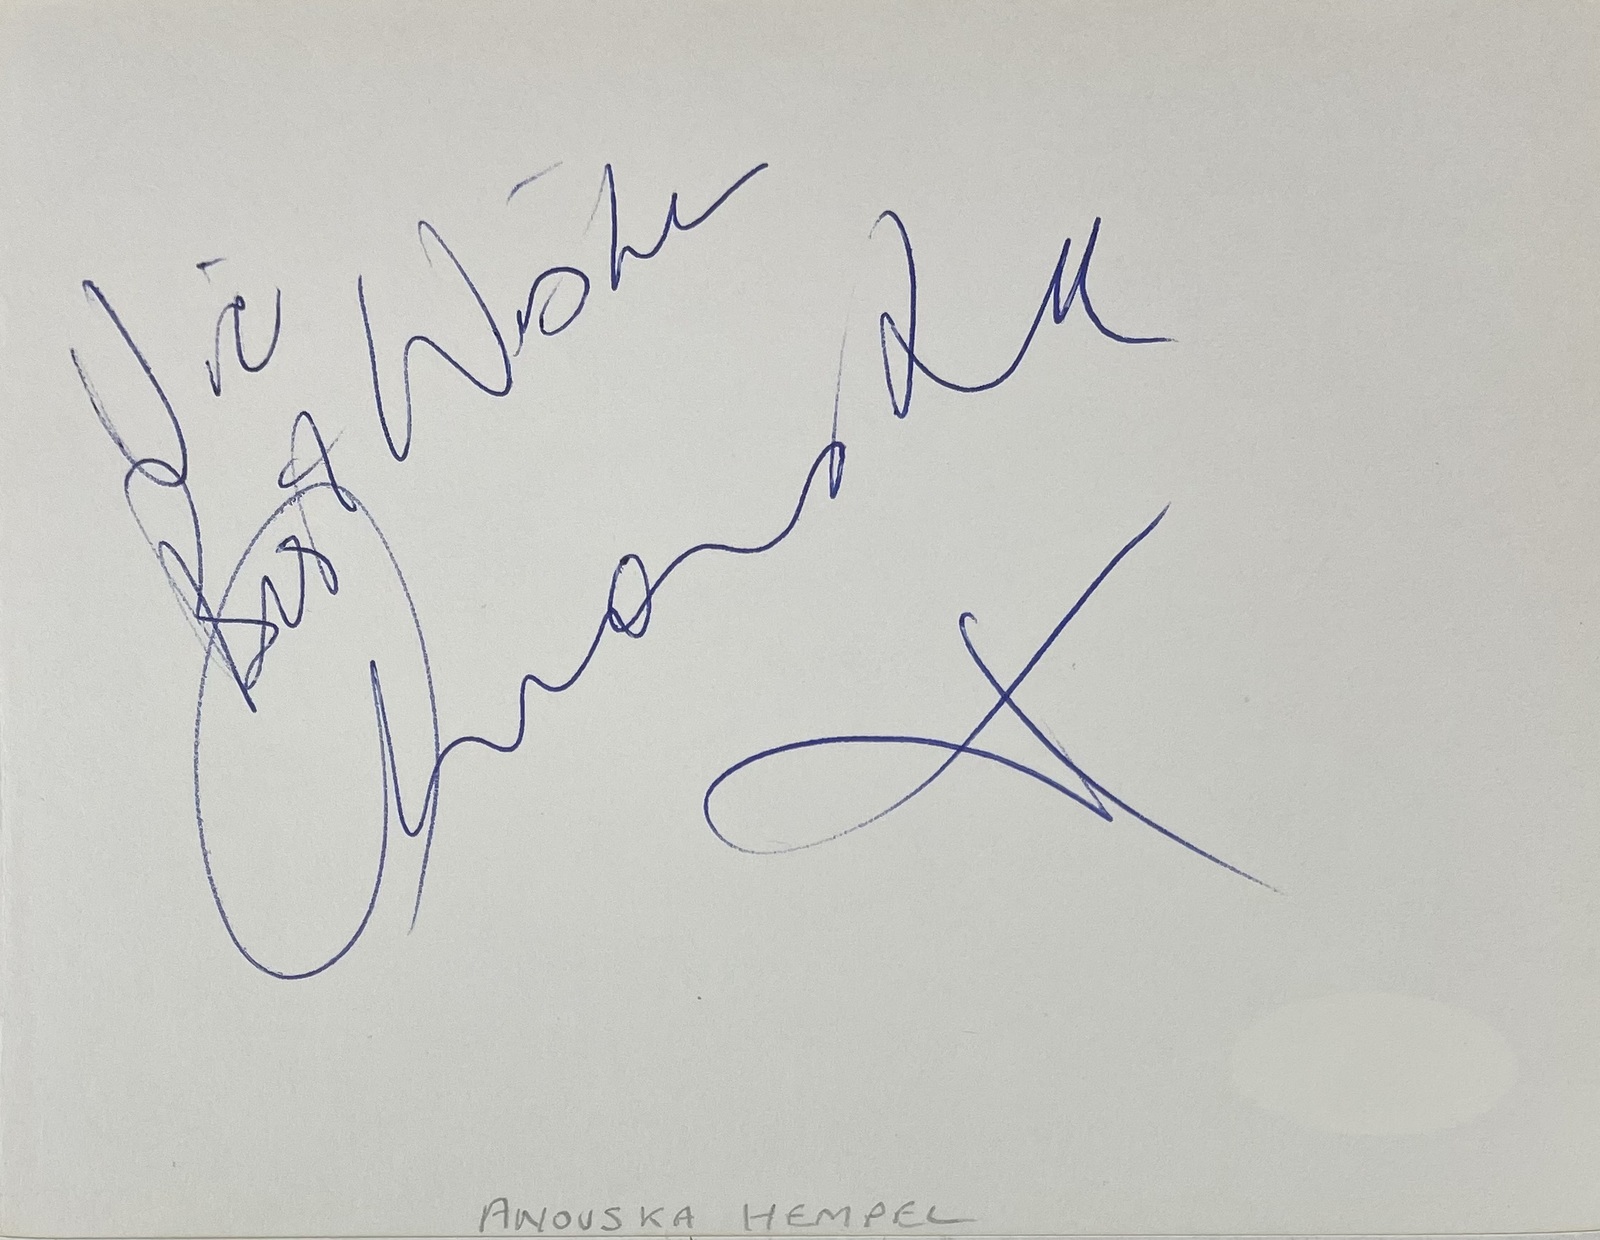 Vic
Best Wishes
Anouska
X
ANOUSKA HEMPEL